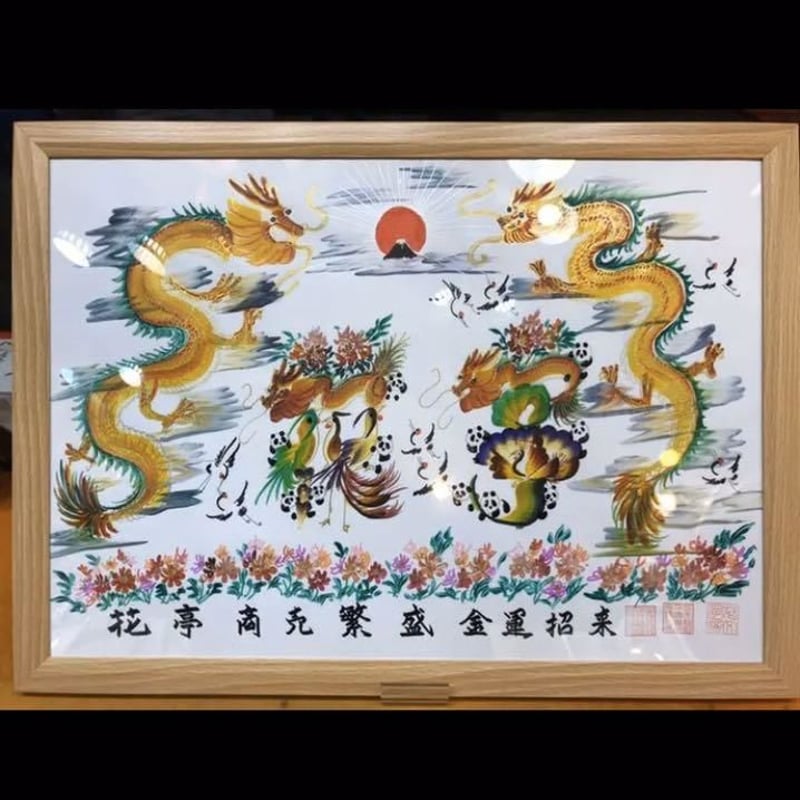 花亭 商売繁盛 金運招来